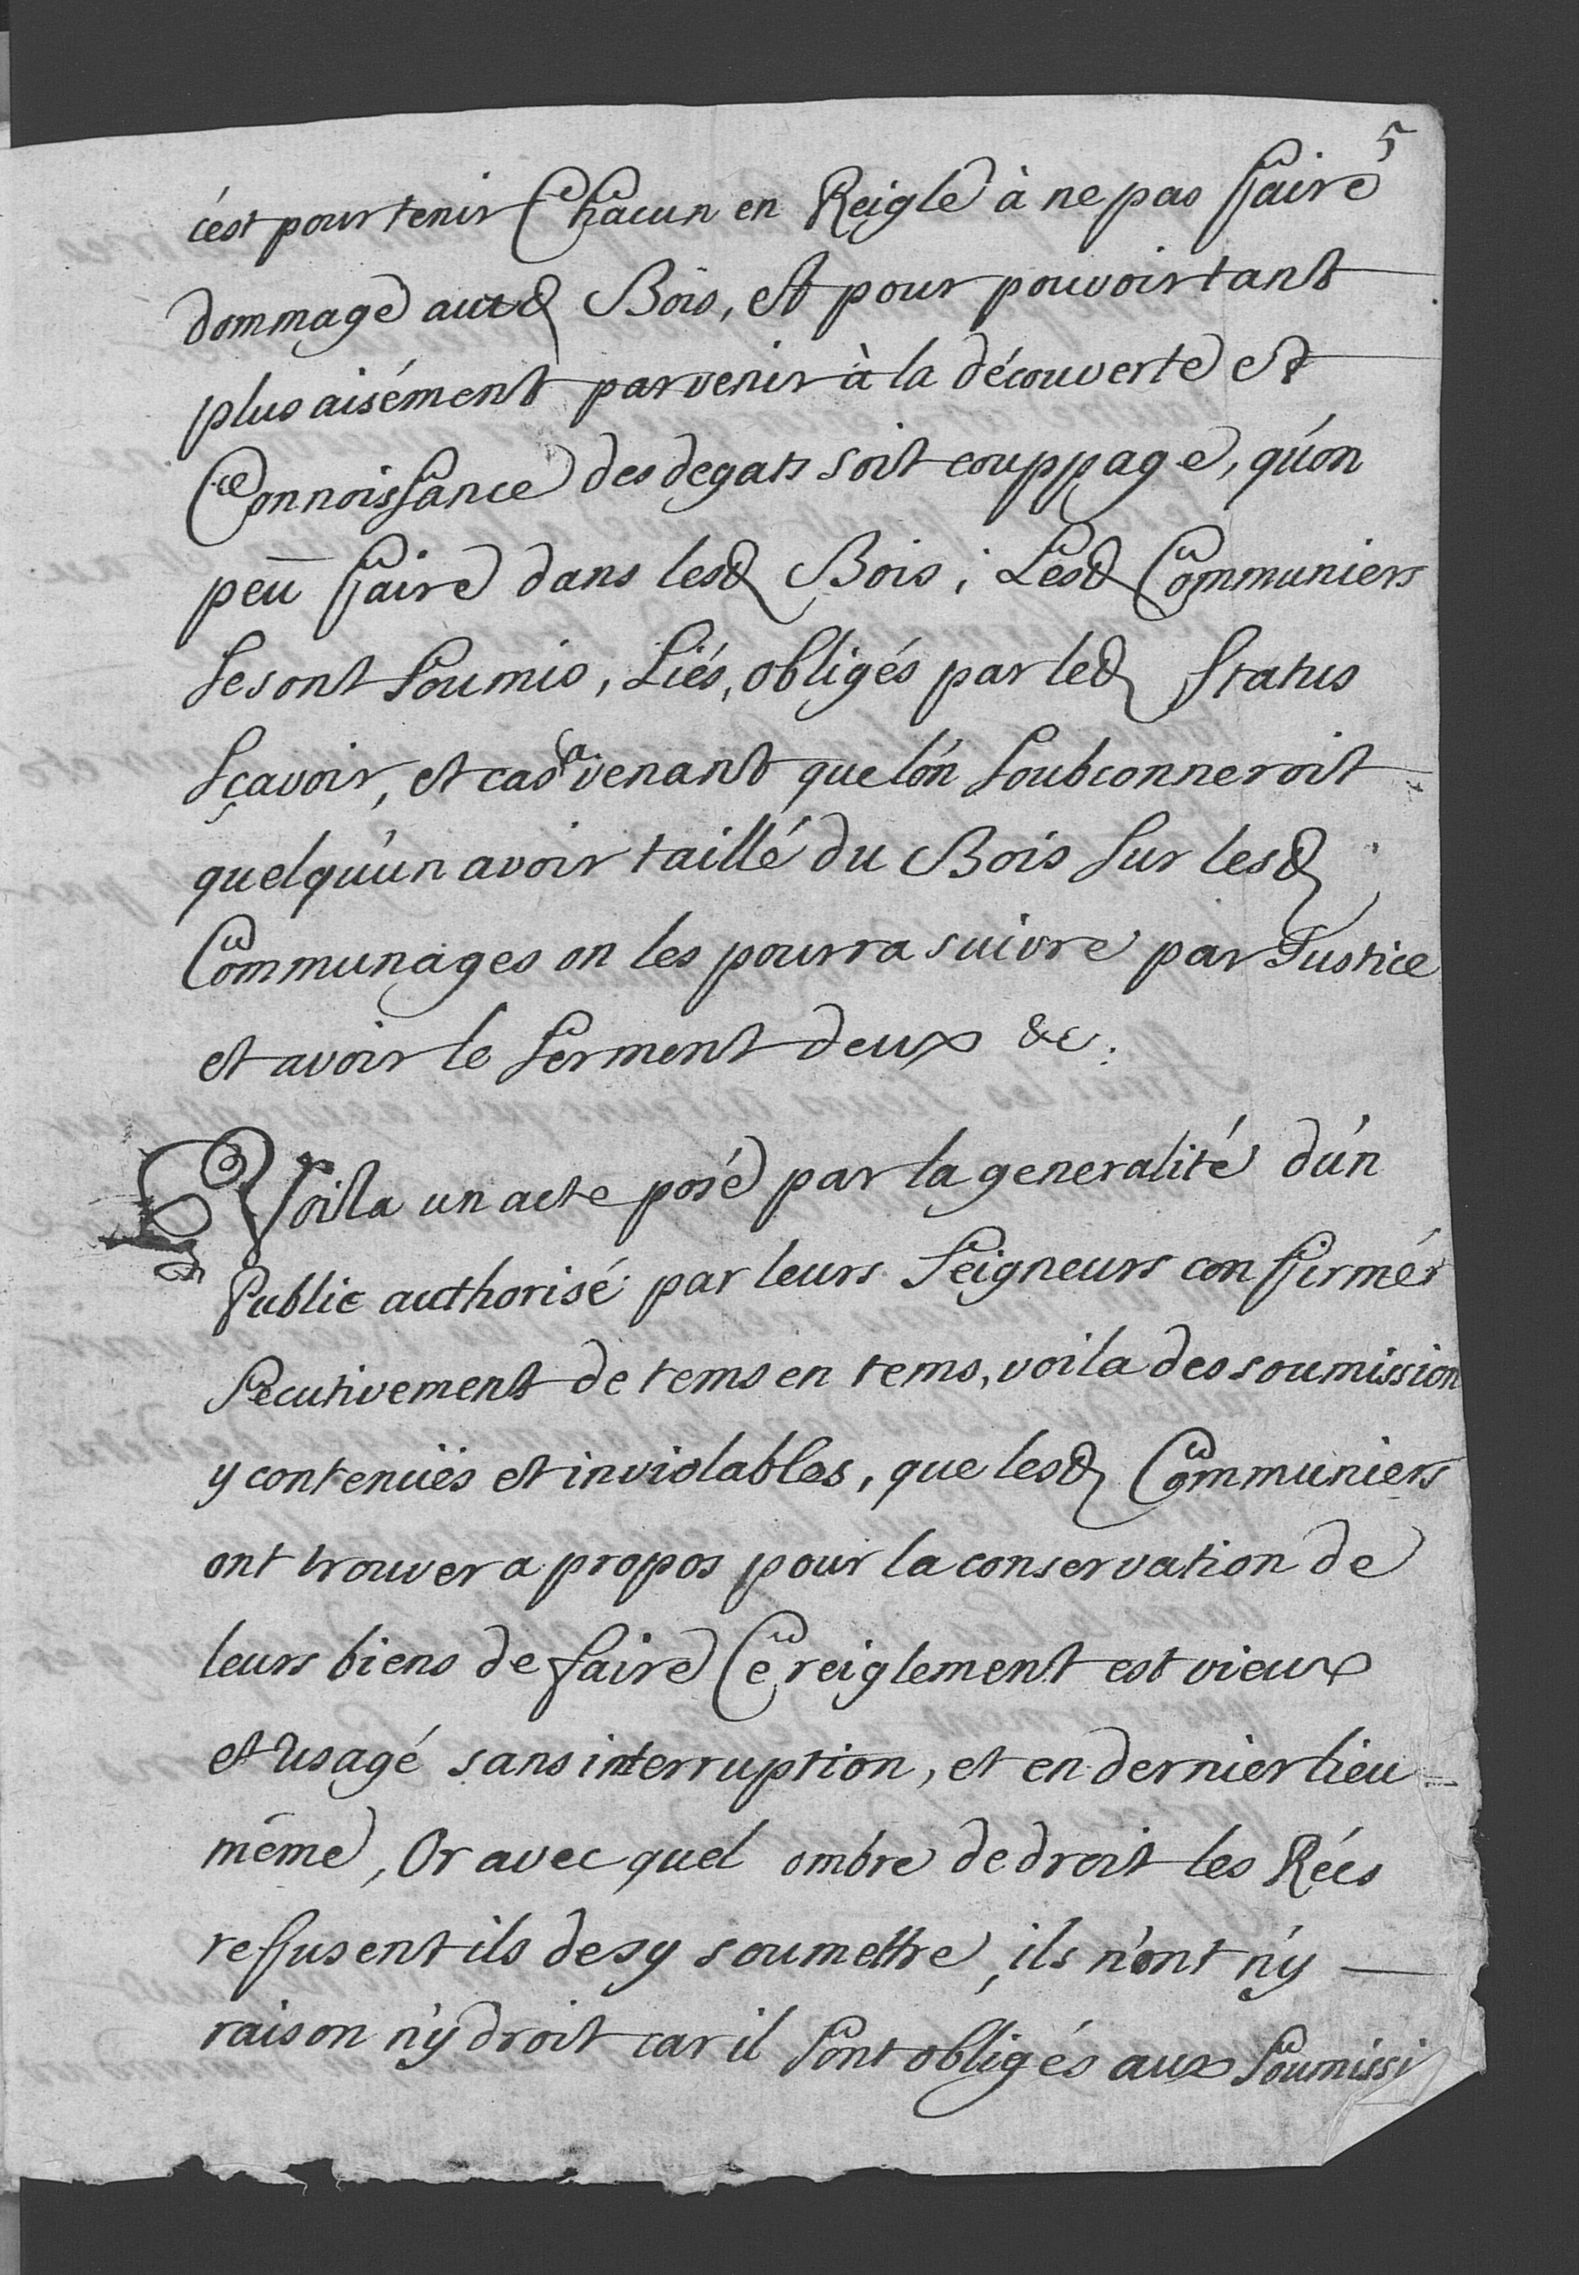 5
c'est pour tenir Chacun en Reigle à ne pas ffaire
dommage auxd Bois, et pour pouvoir tant
plus aisément parvenir à la découverte et
Connoissance des degats soit couppage, qu'on
peu ffaire dans lesd Bois; Lesd Communiers
se sont soumis, Liés, obligés par led status
sçavoir, et cas avenant que l'on soubconneroit
quelqu'un avoir taillé du Bois sur lesd
Communages on les pourra suivre par Justice
et avoir le serment deux &c.
Voila un acte posé par la generalité d'un
Public authorisé par leurs Seigneurs conffirmér
secutivement de tems en tems, voila des soumission
y contenües et inviolables, que lesd Communiers
ont trouver a propos pour la conservation de
leurs biens de faire Ce reiglement est vieux
et Usagé sans interruption, et en dernier lieu
même, Or avec quel ombre de droit les Rées
reffusent ils de sy soumettre, ils n'ont n'y
raison n'y droit car il sont obligés aux soumissi